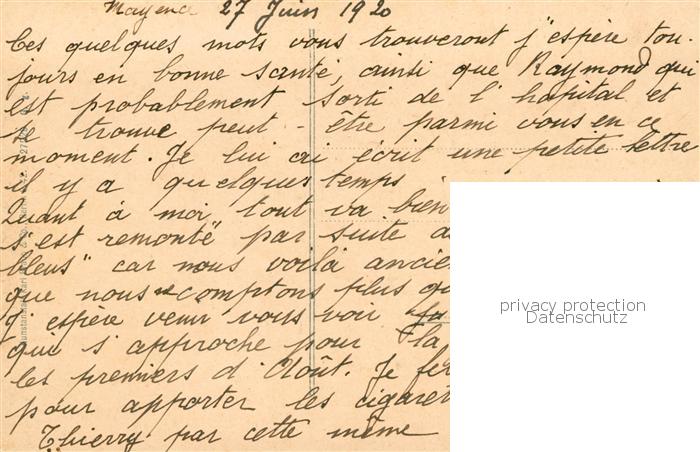 Mayence 27 Juin 1920
Ces quelques mots vous trouveront j'espère tou-
jours en bonne santé, ainsi que Raymond qui
est probablement sorti de l'hôpital et
se trouve peut-être parmi vous en ce
moment. Je lui ai écrit une petite lettre
il y a quelques temps
Quant à moi, tout va bien
s'est remonté" par suite
bleus" car nous voilà
que nous comptons plus
J'espère venir vous voir
que s'approche pour la
les premiers d'Août. Je
pour apporter les
Thierry par cette même
privacy protection
Datenschutz